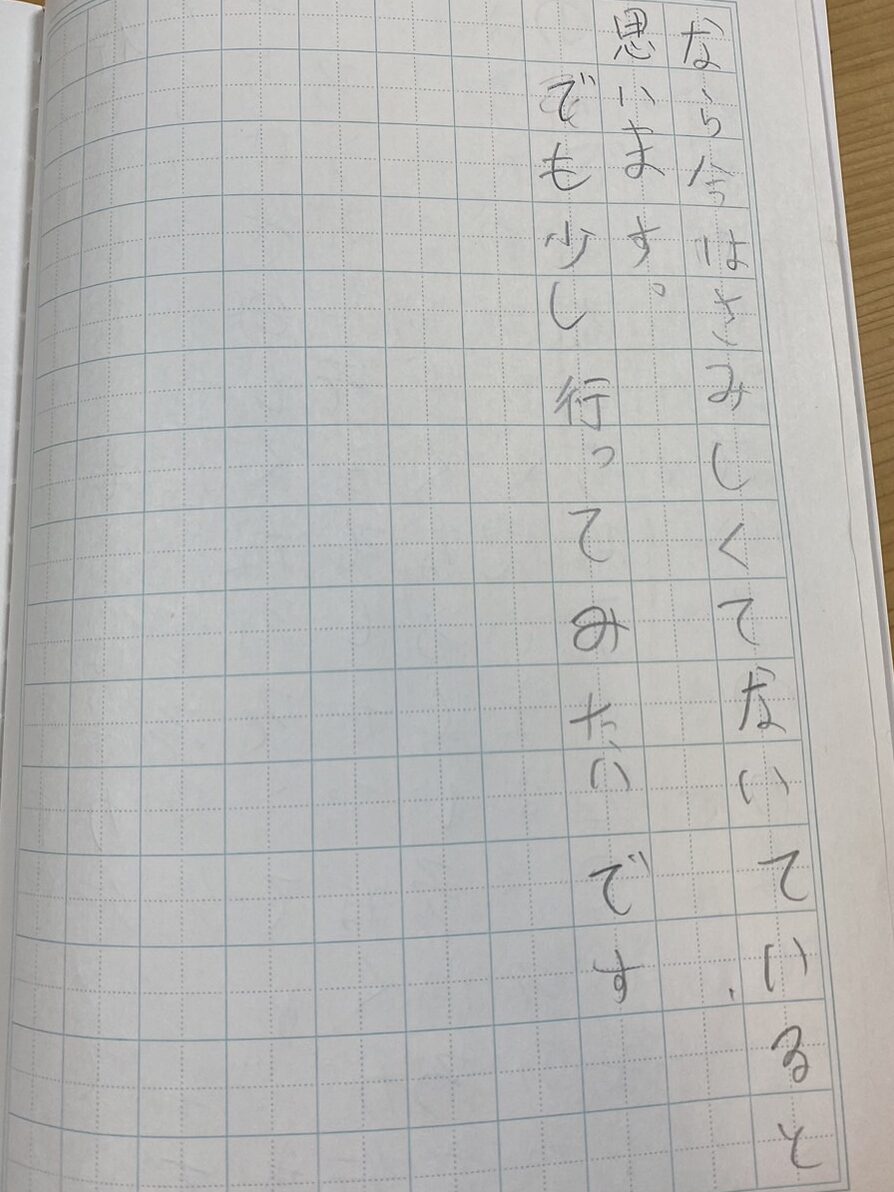 なら今はさみしくてないていると
思います。
でも少し行ってみたいです